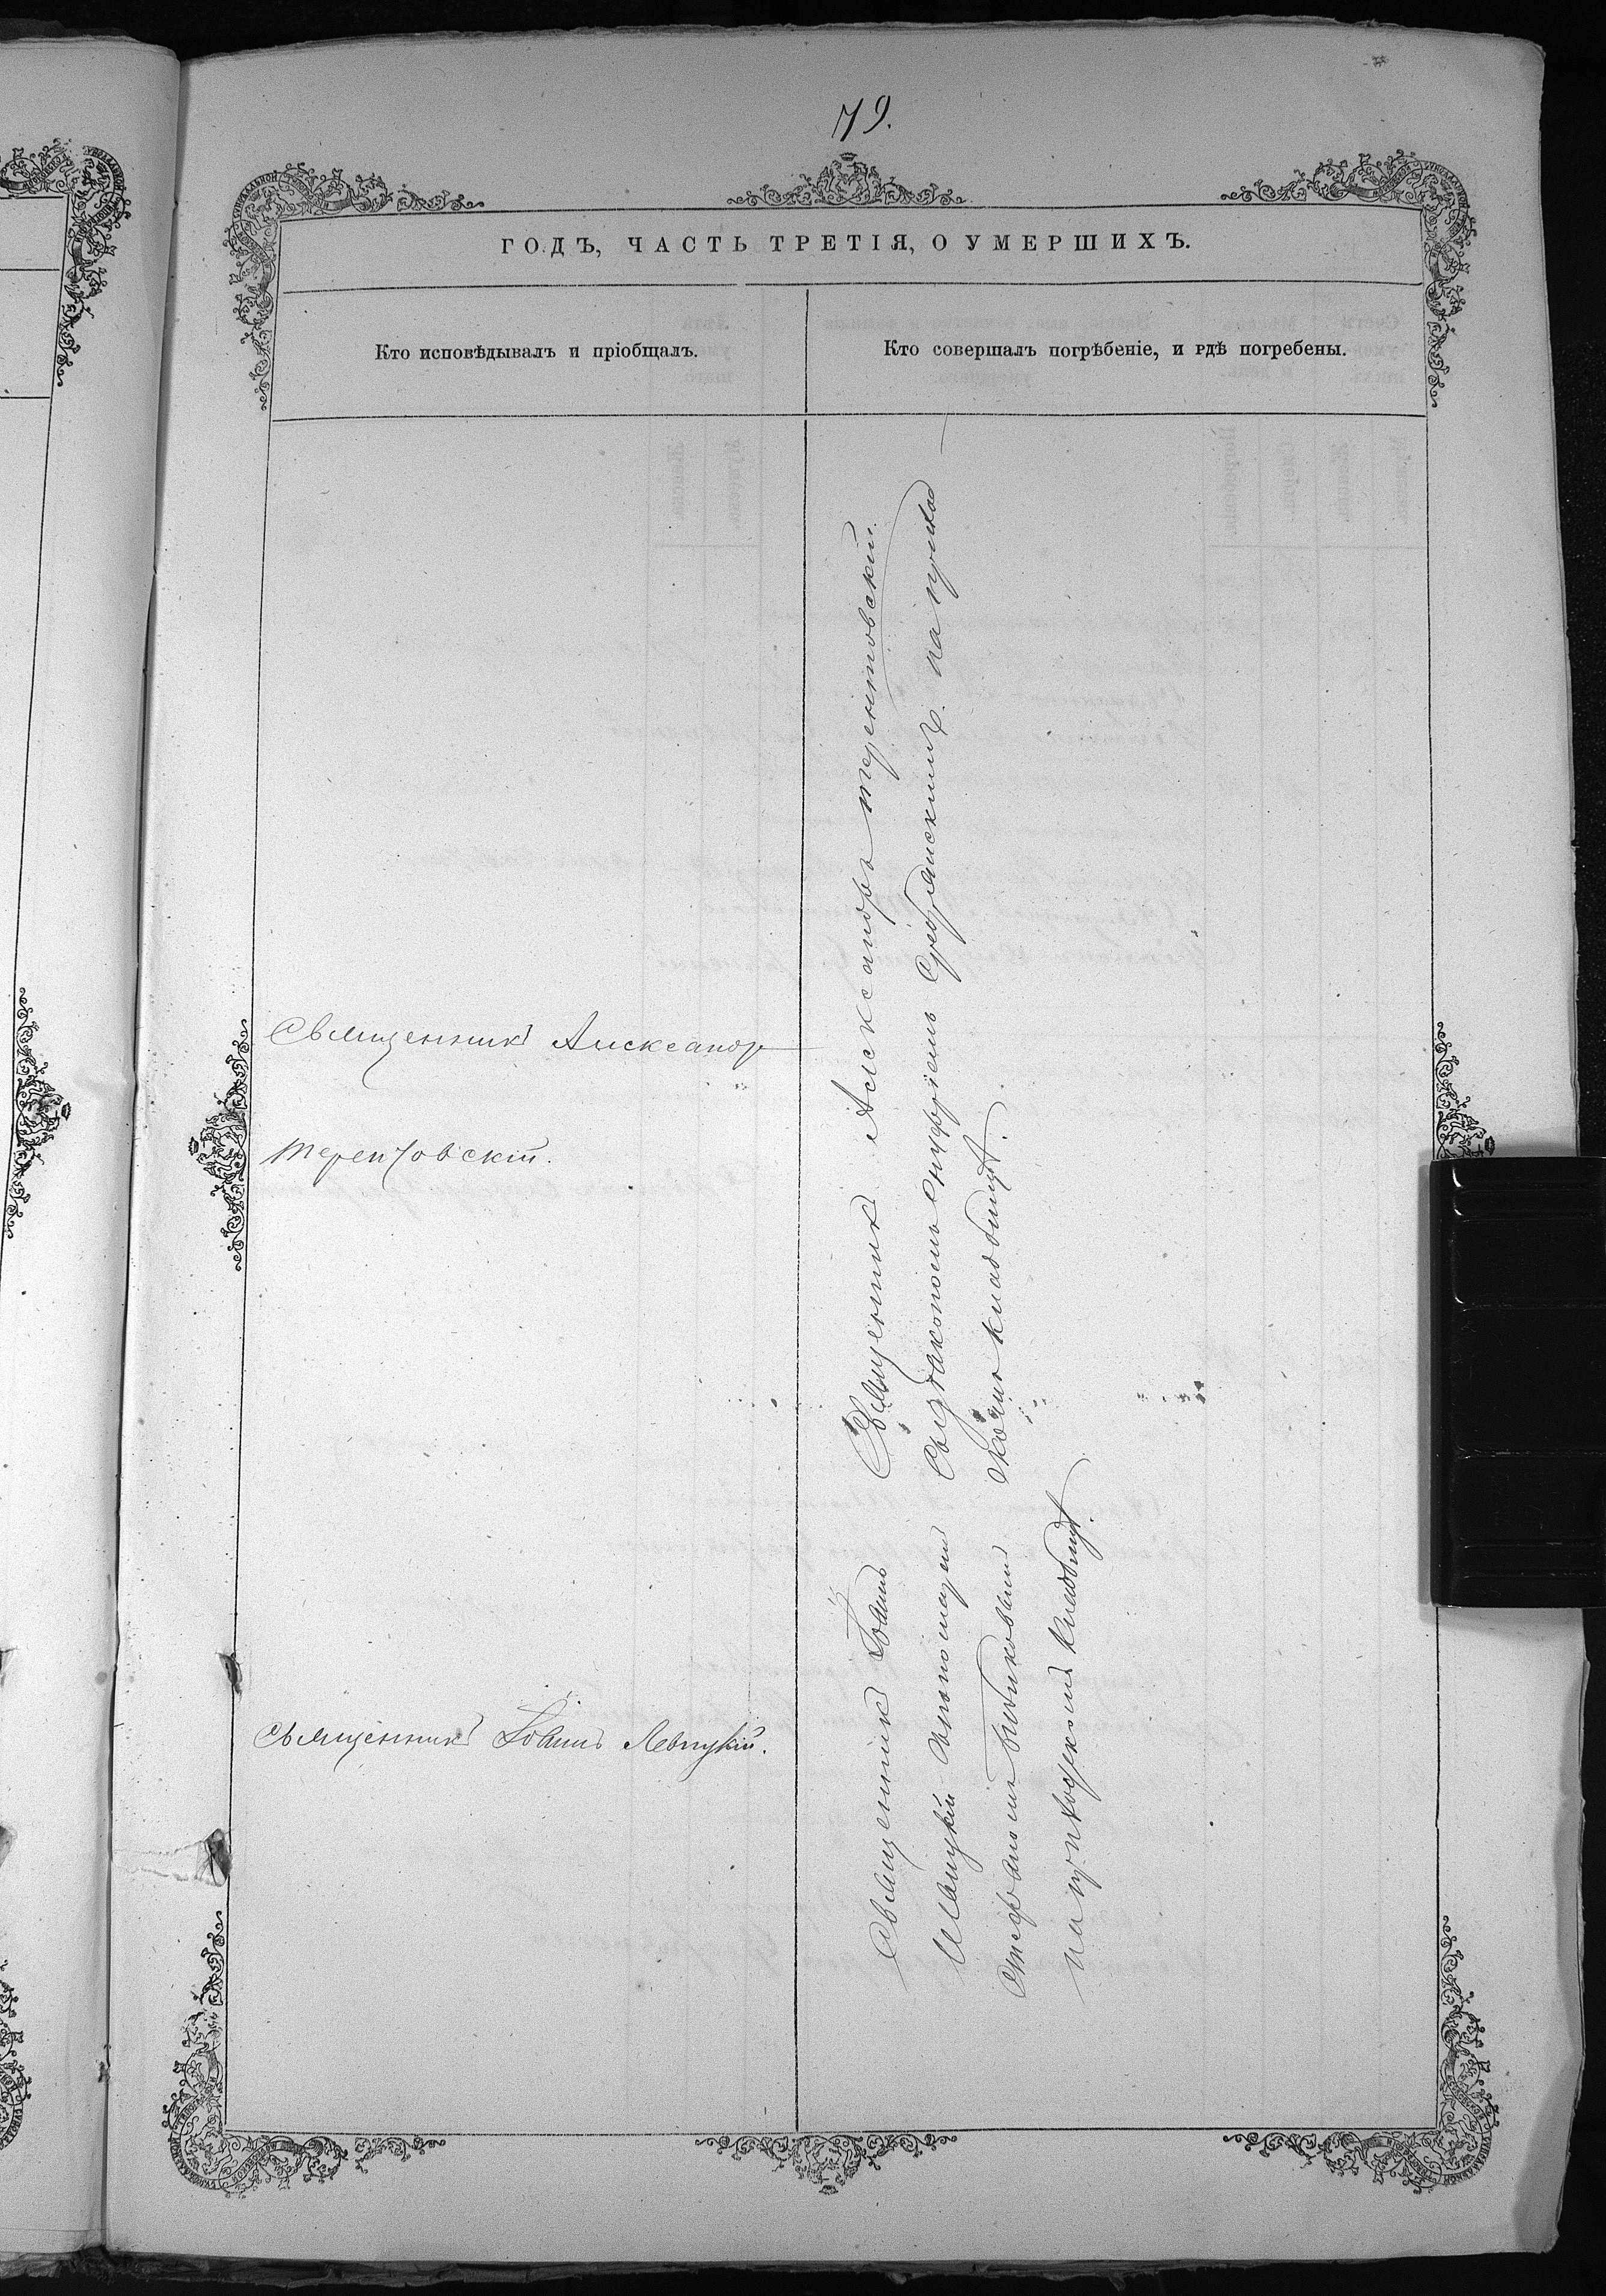 79.
ГОДЪ, ЧАСТЬ ТРЕТІЯ, О УМЕРШИХЪ.
Кто исповѣдывалъ и пріобщалъ.
Кто совершалъ погрѣбеніе, и гдѣ погребены.
Священникъ Александръ
Терентовскій.
Священникъ Іоаннъ Левицкій.
Священникъ Александръ Терентовскій
съ дьякономъ Онуфріемъ Сребрянскимъ на приход
скомъ кладбищѣ.
Священникъ Іоаннъ
Левицкій съ псаломщ
Стефаномъ Быбиковымъ
на приходскомъ кладбищѣ.